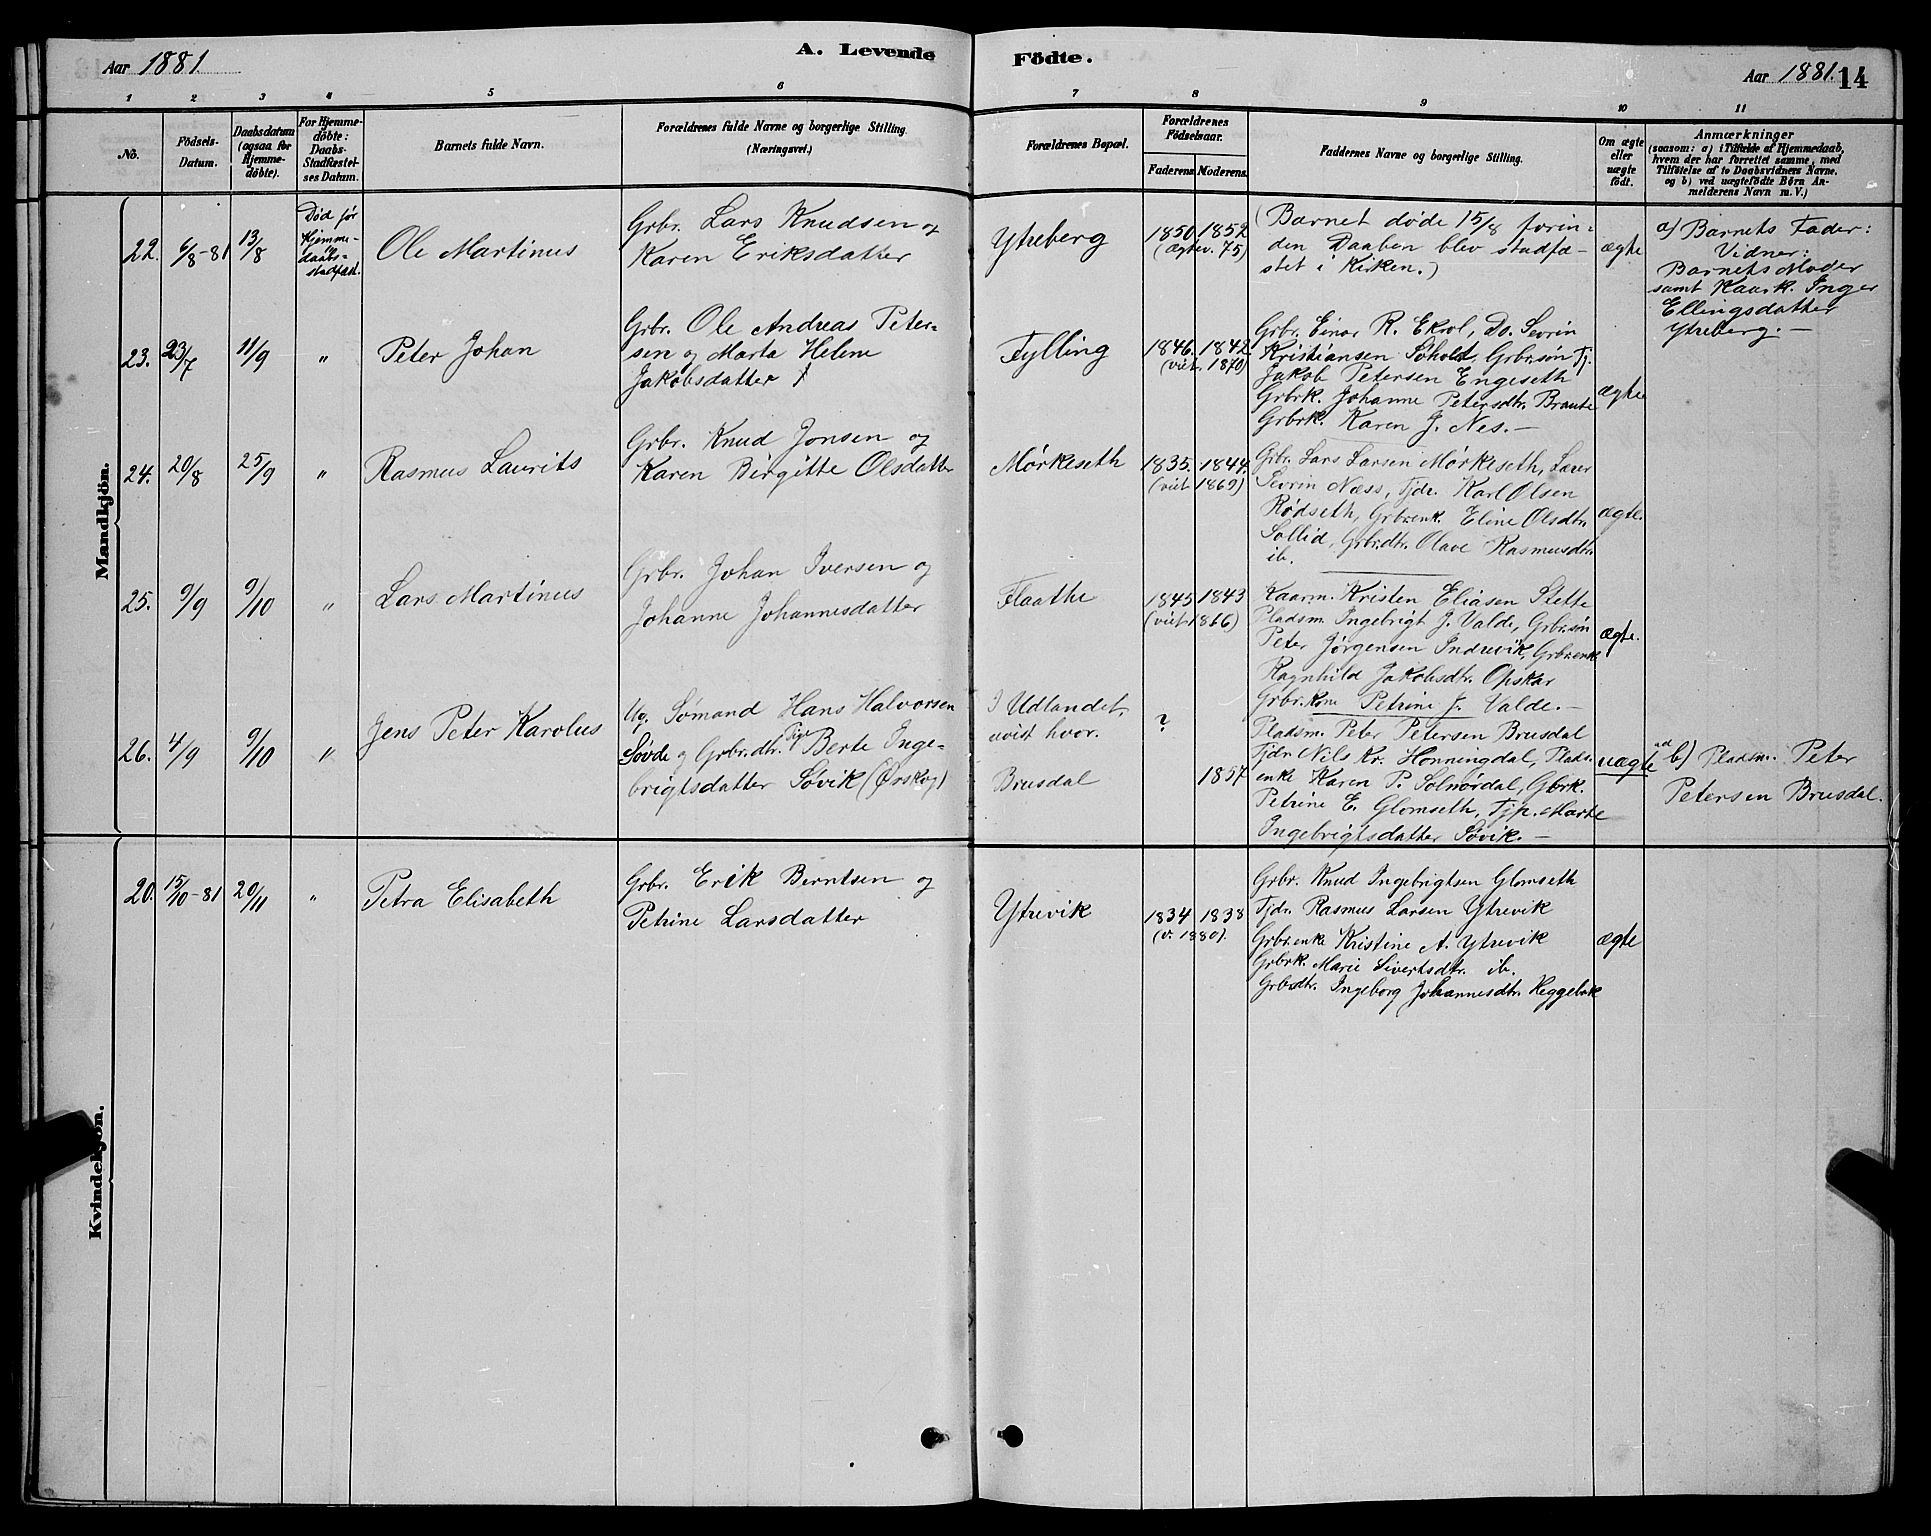 Aar 1881.
A. Levende
Födte.
Aar 1881.
14
1 2 3 4 5 6 7 8 9 10 11
No.
Födsels-
Datum.
Daabsdatum
(ogsaa for
Hjemme-
döbte).
For Hjemme-
döbte:
Daabs-
Stadfæstel-
ses Datum.
Barnets fulde Navn.
Forældrenes fulde Navne og borgerlige Stilling.
(Næringsvei.)
Forældrenes Bopæl.
Forældrenes
Födselsaar.
Faderens Moderens.
Faddernes Navne og borgerlige Stilling.
Om ægte
eller
uægte
født.
Anmærkninger
(saasom: a) i Tilfælde af Hjemmedaab,
hvem der har forrettet samme, med
Tilföielse af to Daabsvidners Navne.
og b) ved uægtefödte Börn An-
melderens Navn m. V.)
Mandkjön.
22.
6/8-81
13/8
Død før
Hjemme-
daabs-
stadfæst.
Ole Martinus
Grbr. Lars Knudsen og
Karen Eriksdatter
Ytreberg
1850. 1852
(Ægtev. 75)
(Barnet døde 15/8 forin-
den Daaben blev stadfæ-
stet i Kirken.)
ægte
a) Barnets Fader:
Vidner:
Barnets Moder
samt Kaark. Inger
Ellingsdatter
Ytreberg. —
23.
23/7
11/9
"
Peter Johan
Grbr. Ole Andreas Peter-
sen og Marta Helene
Jakobsdatter
Fylling
1846. 1842
(viet. 1870)
Grbr. Einar R. Ekrol, Do. Sevrin
Kristiansen Søholt, Grbr.søn
Jakob Petersen Engeseth
Grbrk. Johanne Petersdtr. Braute
Grbrk. Karen J. Nes. —
ægte
24.
20/8
25/9
"
Rasmus Laurits
Grbr. Knud Jonsen og
Karen Birgitte Olsdatter
Mørkeseth
1835. 1844.
(viet 1869)
Grbr. Lars Larsen Mørkeseth, Lærer
Sevrin Næss, Tjdr. Karl Olsen
Rødseth, Grbrenk. Eline Olsdtr.
Sollid, Grbrdtr. Olave Rasmusdtr.
ib.
ægte.
25.
9/9
9/10
"
Lars Martinus
Grbr. Johan Iversen og
Johanne Johannesdatter
Flaathe
1845 1843
(viet 1866)
Kaarm. Kristen Eliasen Stette
Pladsm. Ingebrigt J. Valde, Grbr.søn
Peter Jørgensen Indrevik, Grbrenk
Ragnhild Jakobsdtr. Opskar
Grbr. Kone Petrine J. Valde. —
ægte.
26.
4/9
9/10
"
Jens Peter Karolus
Ug. Sømand Hans Halvorsen
Søvde og Grbr.dtr. Pige Berte Inge-
brigtsdatter Søvik (Ørskog)
I Udlandet,
uvist hvor.
Brusdal
?
1857
Pladsm. Peter Petersen Brusdal
Tjdr. Nils Kr. Honningdal, Plads-
enke Karen P. Solnørdal, Gbrk.
Petrine E. Glomseth, Tjp. Marte
Ingebrigtsdatter Søvik. —
uægte
ad b) Pladsm. Peter
Petersen Brusdal.
Kvindekjön.
20.
15/10-81
20/11
"
Petra Elisabeth
Grbr. Erik Berntsen og
Petrine Larsdatter
Ytrevik
1834 1838
(v. 1880).
Grbr. Knud Ingebrigtsen Glomseth
Tjdr. Rasmus Larsen Ytrevik
Grbr.enke Kristine A. Ytrevik
Grbrk. Marie Sivertsdtr. ib.
Grbrdtr. Ingeborg Johannesdtr.
ægte